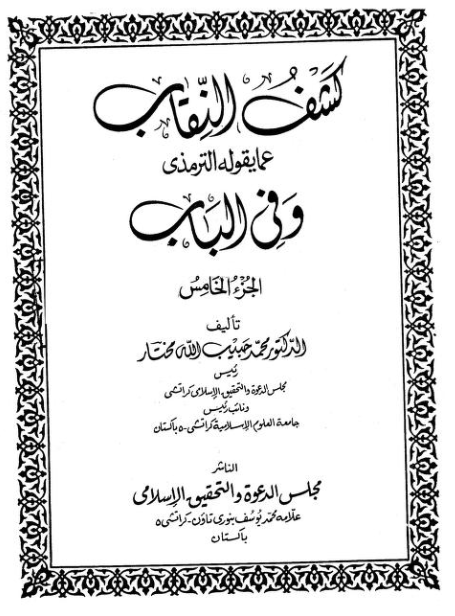 كَشْفُ النِّقَاب
عما يقوله الترمذى
وَفِى البَاب
الجُزْءُ الخَامِسُ
تأليف
الدكتور محمد حبيب الله مختار
رئيس
مجلس الدعوة والتحقيق الإسلامى كراتشى
ونائب رئيس
جامعة العلوم الإسلامية كراتشى-٥ باكستان
الناشر
مجلس الدعوة والتحقيق الإسلامى
علامه محمد يوسف بنورى تاؤن-كراتشى ٥
باكستان